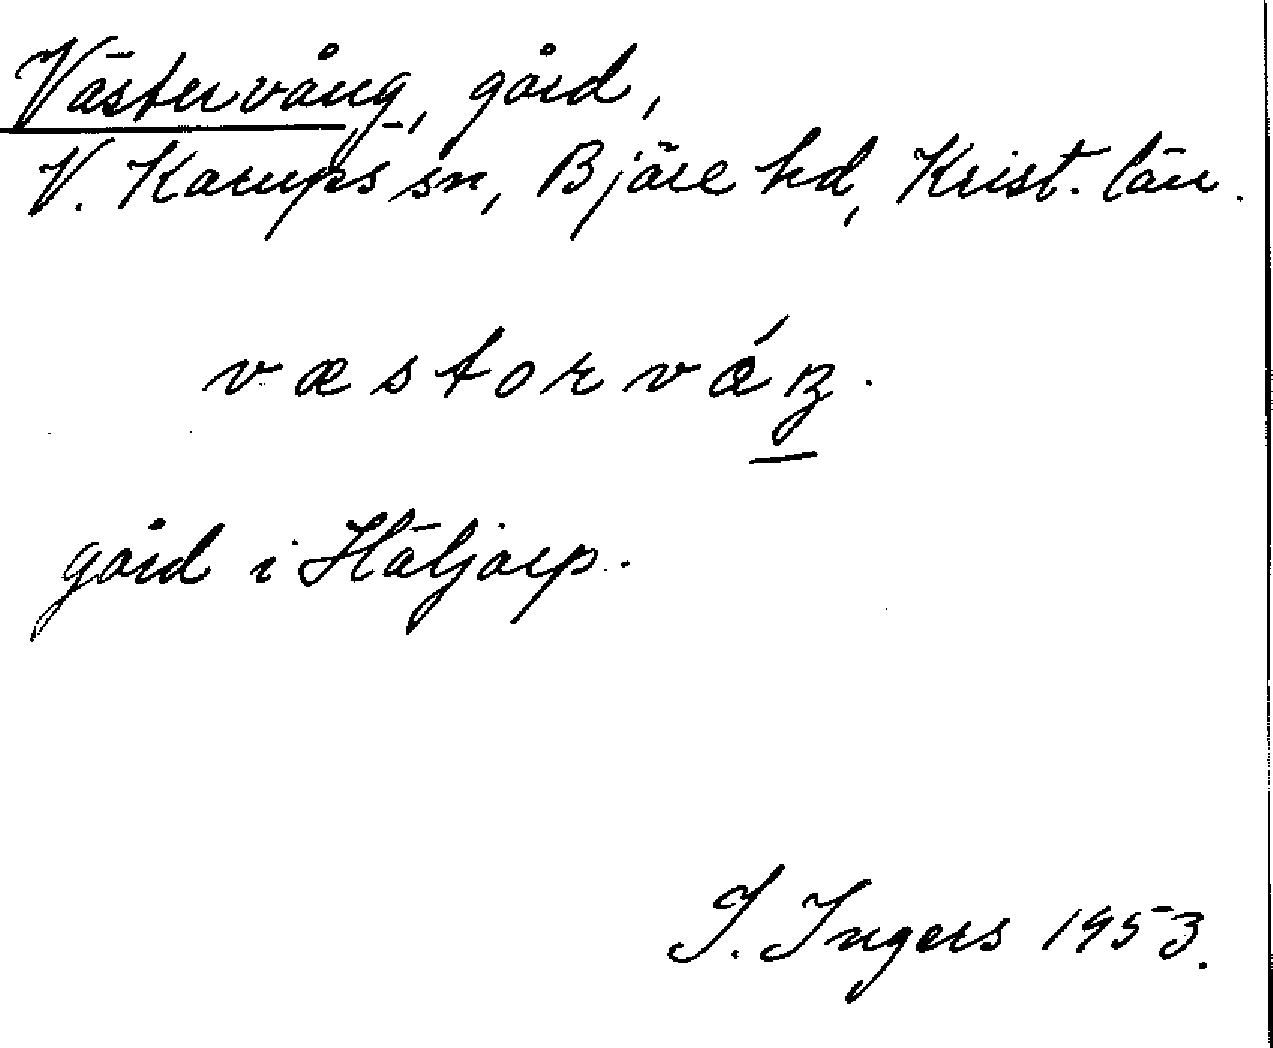 Västervång, gård,
V. Karups sn, Bjäre hd, Krist. län.
væstorvǽŋ.
gård i Häljarp.
I. Ingers 1953.